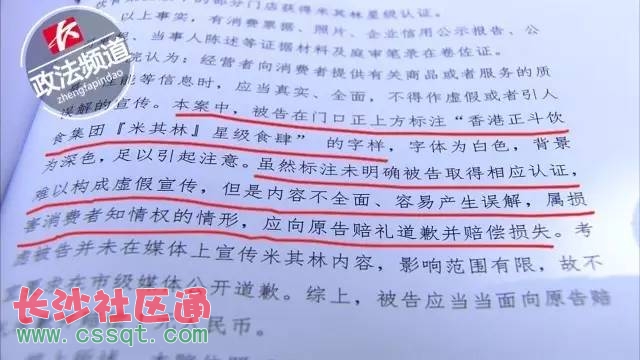 的部分门店获得米其林星级认证。
以上事实，有消费票据、照片、企业信用公示报告、公
当事人陈述等证据材料及庭审笔录在卷佐证。
院认为：经营者向消费者提供有关商品或者服务的质
能等信息时，应当真实、全面，不得作虚假或者引人
误解的宣传。本案中，被告在门口正上方标注“香港正斗饮
食集团『米其林』星级食肆”的字样，字体为白色，背景
为深色，足以引起注意。虽然标注未明确被告取得相应认证，
难以构成虚假宣传，但是内容不全面、容易产生误解，属损
害消费者知情权的情形，应向原告赔礼道歉并赔偿损失。考
虑被告并未在媒体上宣传米其林内容，影响范围有限，故不
求在市级媒体公开道歉。综上，被告应当当面向原告赔
民币。
政法频道
zhengfapindao
长沙社区通
www.cssqt.com